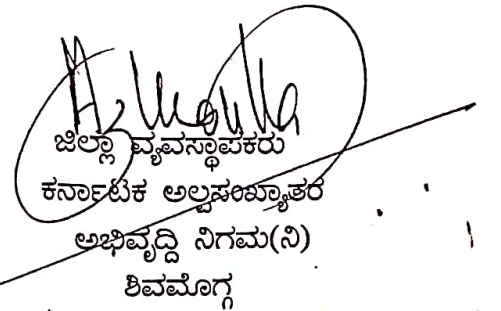 ಜಿಲ್ಲಾ ವ್ಯವಸ್ಥಾಪಕರು
ಕರ್ನಾಟಕ ಅಲ್ಪಸಂಖ್ಯಾತರ
ಅಭಿವೃದ್ಧಿ ನಿಗಮ(ನಿ)
ಶಿವಮೊಗ್ಗ